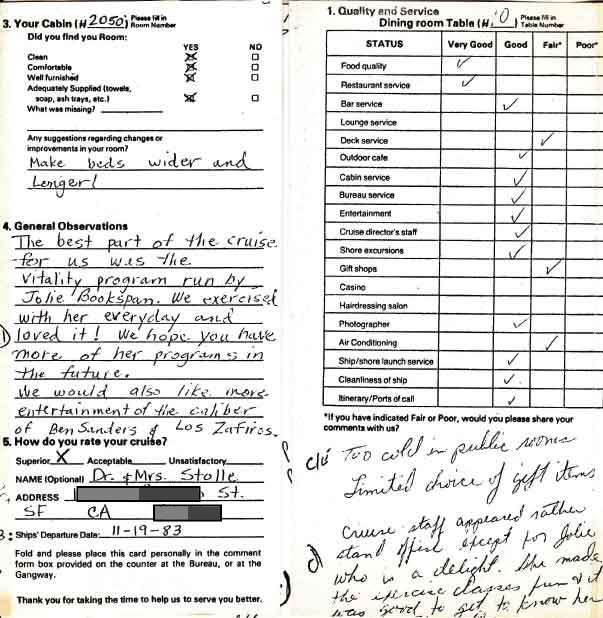 3. Your Cabin (# 2050) Please fill in Room Number
Did you find you Room:
YES NO
Clean
Comfortable
Well furnished
Adequately Supplied (towels,
soap, ash trays, etc.)
What was missing?
Any suggestions regarding changes or
improvements in your room?
Make beds wider and
Longer!
4. General Observations
The best part of the cruise
for us was the
Vitality program run by
Jolie Bookspan. We exercised
with her everyday and
loved it! We hope you have
more of her programs in
the future.
We would also like more
entertainment of the caliber
of Ben Sanders & Los Zafiros.
5. How do you rate your cruise?
Superior X Acceptable Unsatisfactory
NAME (Optional) Dr. & Mrs. Stolle
ADDRESS St.
SF CA
Ships' Departure Date: 11-19-83
Fold and please place this card personally in the comment
form box provided on the counter at the Bureau, or at the
Gangway.
Thank you for taking the time to help us to serve you better.
1. Quality and Service
Dining room Table (#: 0) Please fill in Table Number
STATUS Very Good Good Fair* Poor*
Food quality
Restaurant service
Bar service
Lounge service
Deck service
Outdoor cafe
Cabin service
Bureau service
Entertainment
Cruise director's staff
Shore excursions
Gift shops
Casino
Hairdressing salon
Photographer
Air Conditioning
Ship/shore launch service
Cleanliness of ship
Itinerary/Ports of call
*If you have indicated Fair or Poor, would you please share your
comments with us?
Too cold in public rooms
Limited choice of gift items
Cruise staff appeared rather
stand offish except for Jolie
who is a delight. She made
the exercise classes fun & it
was good to get to know her